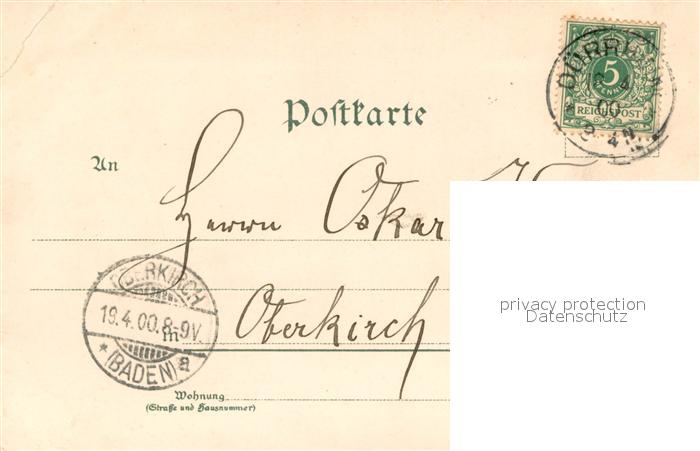 5
PFENNIG
REICHSPOST
00
Postkarte
An
Herrn Oskar
OBERKIRCH
19.4.00.8-9V.
* (BADEN) a
in
Oberkirch
privacy protection
Datenschutz
Wohnung
(Straße und Hausnummer)